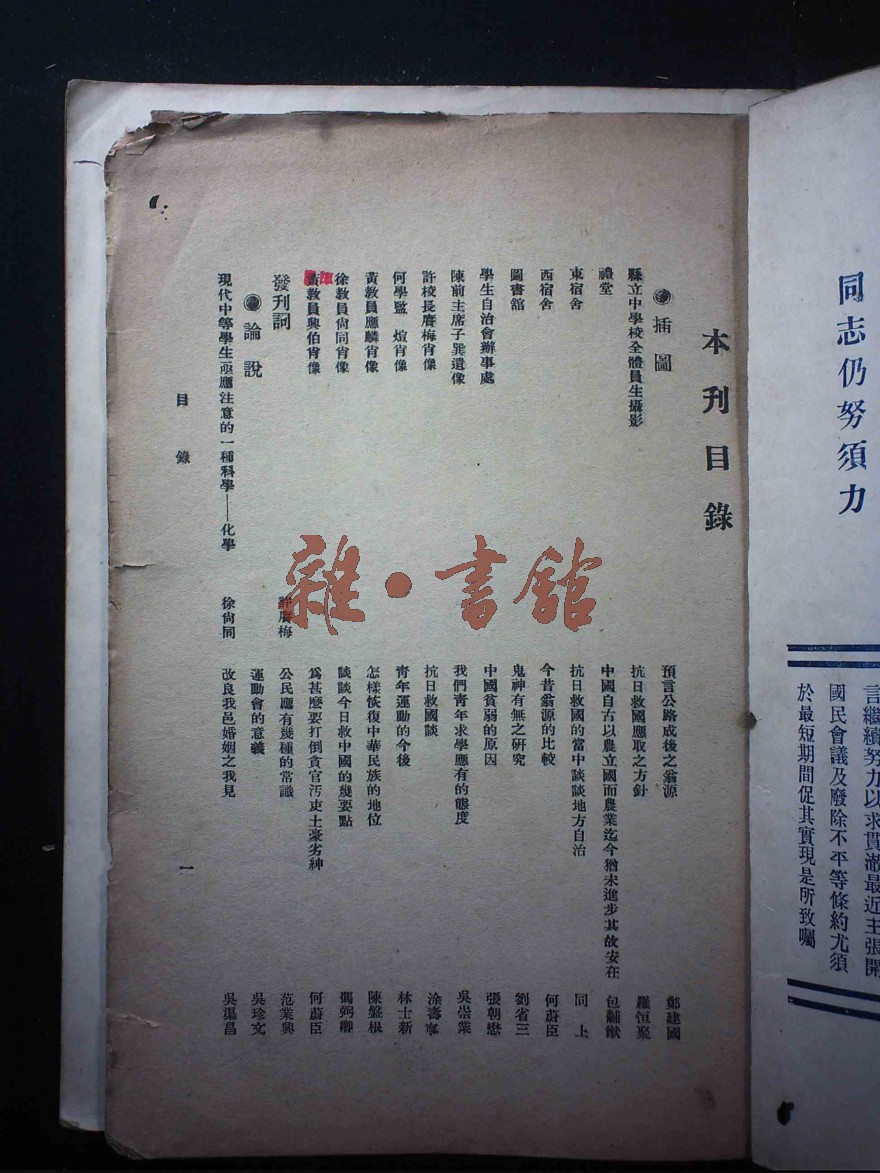 同志仍努須力
言繼續努力以求貫澈最近主張開
國民會議及廢除不平等條約尤須
於最短期間促其實現是所致囑
本刊目錄
插圖
縣立中學校全體員生攝影
禮堂
東宿舍
西宿舍
圖書舘
學生自治會辦事處
陳前主席子巽遺像
許校長賡梅肖像
何學監 煊肖像
黃教員應麟肖像
徐教員尙同肖像
黃教員興伯肖像
發刊詞 許賡梅
論說
現代中等學生亟應注意的一種科學——化學 徐尙同
預言公路成後之翁源 鄭建國
抗日救國應取之方針 羅恒聚
中國自古以農立國而農業迄今猶未進步其故安在 包黼猷
抗日救國的當中談談地方自治 同上
今昔翁源的比較 何蔚臣
鬼神有無之研究 劉省三
中國貧弱的原因 張朝懋
我們青年求學應有的態度 吳崇業
抗日救國談 涂壽寧
青年運動的今後 林士新
怎樣恢復中華民族的地位 陳盤根
談談今日救中國的幾要點 馮弼卿
爲甚麼要打倒貪官汚吏土豪劣紳 何蔚臣
公民應有幾種的常識 范業興
運動會的意義 吳珍文
改良我邑婚姻之我見 吳渠昌
目錄
一
雜·書舘